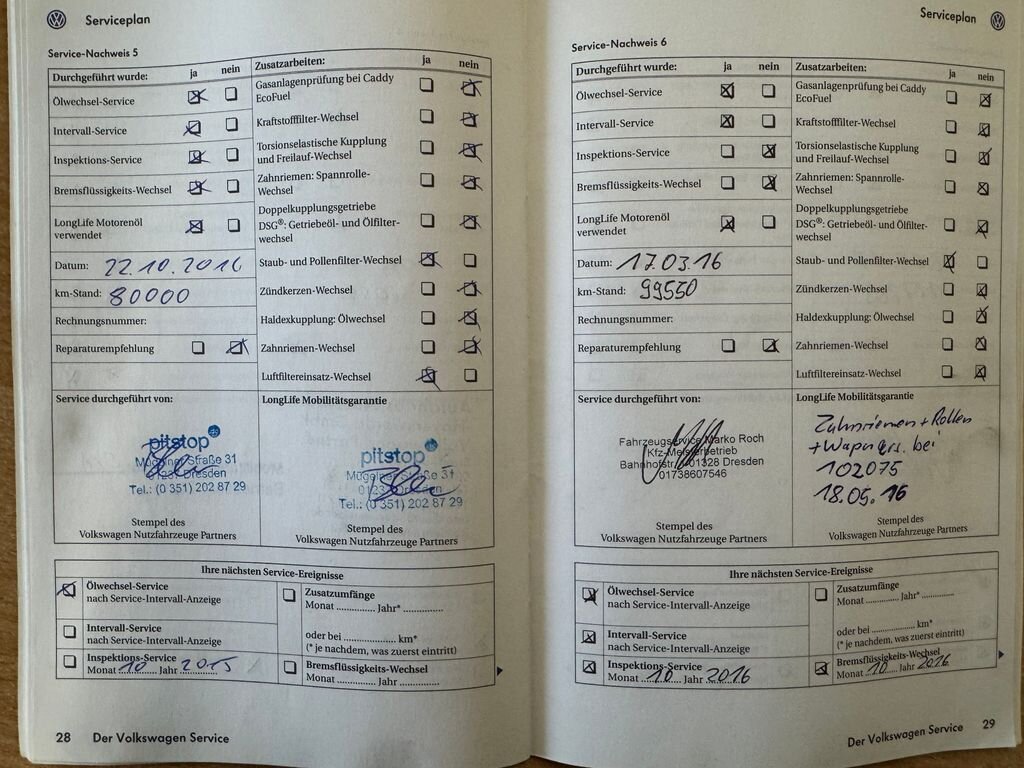 Serviceplan
Service-Nachweis 5
Durchgeführt wurde: ja nein
Ölwechsel-Service
Intervall-Service
Inspektions-Service
Bremsflüssigkeits-Wechsel
LongLife Motorenöl
verwendet
Datum: 22.10.2014
km-Stand: 80000
Rechnungsnummer:
Reparaturempfehlung
Zusatzarbeiten: ja nein
Gasanlagenprüfung bei Caddy
EcoFuel
Kraftstofffilter-Wechsel
Torsionselastische Kupplung
und Freilauf-Wechsel
Zahnriemen: Spannrolle-
Wechsel
Doppelkupplungsgetriebe
DSG®: Getriebeöl- und Ölfilter-
wechsel
Staub- und Pollenfilter-Wechsel
Zündkerzen-Wechsel
Haldexkupplung: Ölwechsel
Zahnriemen-Wechsel
Luftfiltereinsatz-Wechsel
Service durchgeführt von:
pitstop
Mügelner Straße 31
01237 Dresden
Tel.: (0 351) 202 87 29
Stempel des
Volkswagen Nutzfahrzeuge Partners
LongLife Mobilitätsgarantie
pitstop
Mügelner Straße 31
01237 Dresden
Tel.: (0 351) 202 87 29
Stempel des
Volkswagen Nutzfahrzeuge Partners
Ihre nächsten Service-Ereignisse
Ölwechsel-Service
nach Service-Intervall-Anzeige
Intervall-Service
nach Service-Intervall-Anzeige
Inspektions-Service
Monat 10 Jahr 2015
Zusatzumfänge
Monat .............. Jahr* ..............
oder bei .................... km*
(* je nachdem, was zuerst eintritt)
Bremsflüssigkeits-Wechsel
Monat .............. Jahr ..............
28 Der Volkswagen Service
Serviceplan
Service-Nachweis 6
Durchgeführt wurde: ja nein
Ölwechsel-Service
Intervall-Service
Inspektions-Service
Bremsflüssigkeits-Wechsel
LongLife Motorenöl
verwendet
Datum: 17.03.16
km-Stand: 99550
Rechnungsnummer:
Reparaturempfehlung
Zusatzarbeiten: ja nein
Gasanlagenprüfung bei Caddy
EcoFuel
Kraftstofffilter-Wechsel
Torsionselastische Kupplung
und Freilauf-Wechsel
Zahnriemen: Spannrolle-
Wechsel
Doppelkupplungsgetriebe
DSG®: Getriebeöl- und Ölfilter-
wechsel
Staub- und Pollenfilter-Wechsel
Zündkerzen-Wechsel
Haldexkupplung: Ölwechsel
Zahnriemen-Wechsel
Luftfiltereinsatz-Wechsel
Service durchgeführt von:
Fahrzeugservice Marko Roch
Kfz-Meisterbetrieb
Bahnhofstr. 01328 Dresden
01738607546
Stempel des
Volkswagen Nutzfahrzeuge Partners
LongLife Mobilitätsgarantie
Zahnriemen + Rollen
bei
102075
18.05.16
Stempel des
Volkswagen Nutzfahrzeuge Partners
Ihre nächsten Service-Ereignisse
Ölwechsel-Service
nach Service-Intervall-Anzeige
Intervall-Service
nach Service-Intervall-Anzeige
Inspektions-Service
Monat 10 Jahr 2016
Zusatzumfänge
Monat .............. Jahr* ..............
oder bei .................... km*
(* je nachdem, was zuerst eintritt)
Bremsflüssigkeits-Wechsel
Monat 10 Jahr 2016
Der Volkswagen Service 29